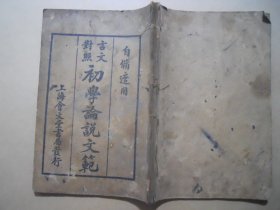 自備適用
言文
對照
初學論說文範
上海會文堂書局發行